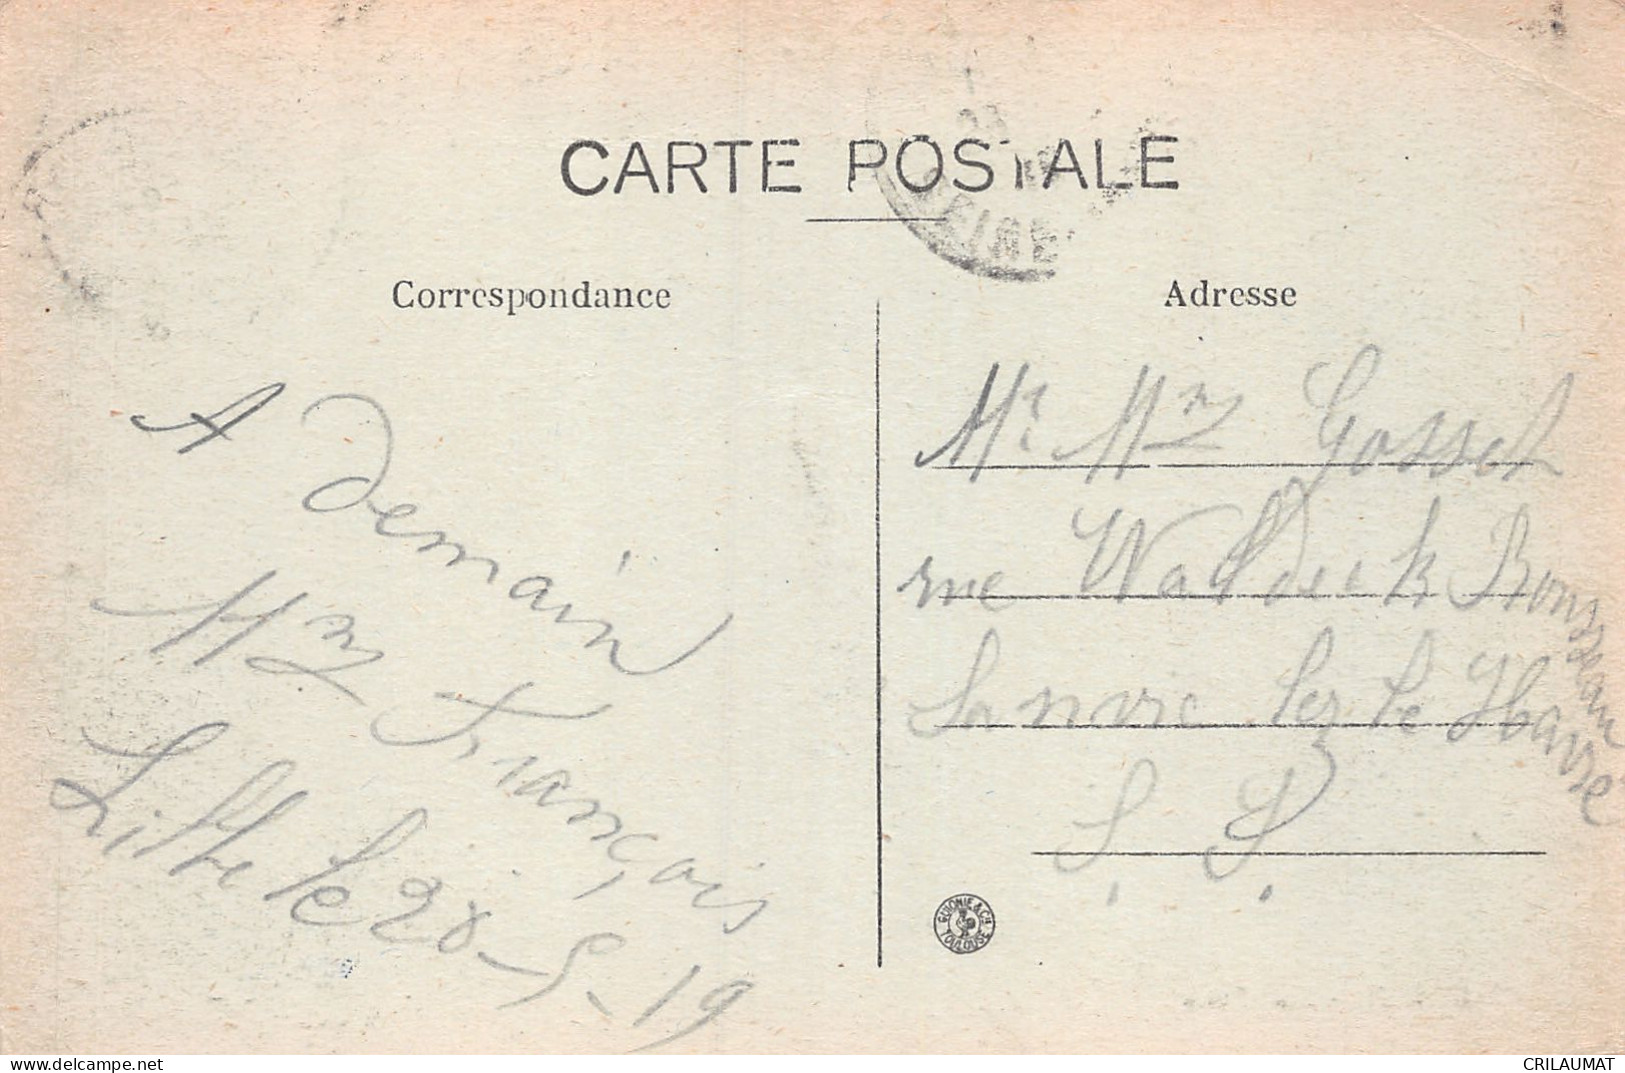 CARTE POSTALE
SEINE
Correspondance
Adresse
A demain
Mme François
Lille le 28-5-19
Mr Mme Gosset
rue Waldeck Rousseau
Sanvic lez le Havre
S. I.
GUIONIE & Cie
TOULOUSE
www.delcampe.net
CRILAUMAT